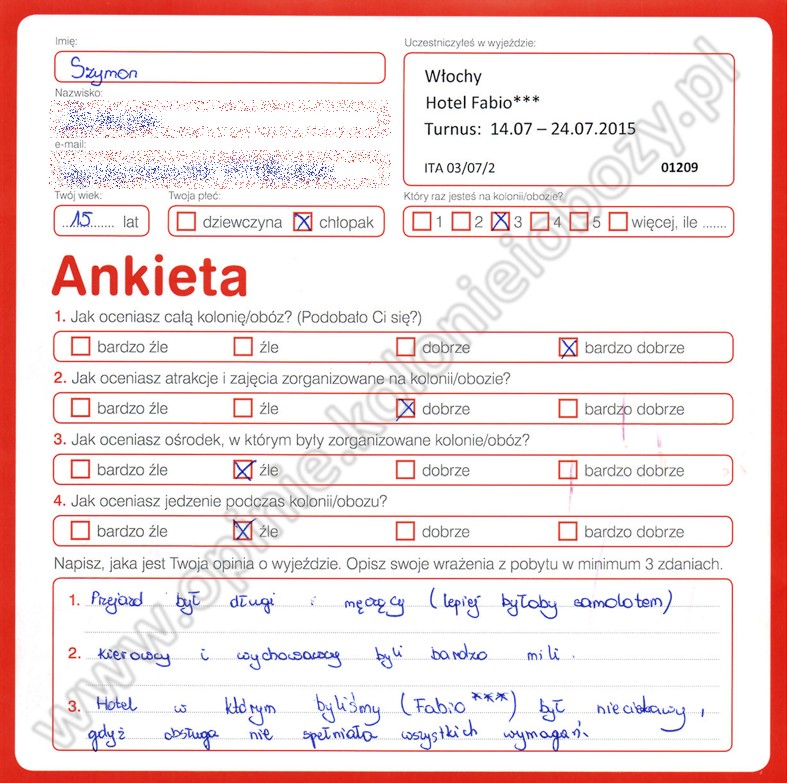 Imię:
Szymon
Nazwisko:
e-mail:
Twój wiek:
15 lat
Twoja płeć:
dziewczyna chłopak
Uczestniczyłeś w wyjeździe:
Włochy
Hotel Fabio***
Turnus: 14.07 – 24.07.2015
ITA 03/07/2 01209
Który raz jesteś na kolonii/obozie?
1 2 3 4 5 więcej, ile .......
Ankieta
1. Jak oceniasz całą kolonię/obóz? (Podobało Ci się?)
bardzo źle źle dobrze bardzo dobrze
2. Jak oceniasz atrakcje i zajęcia zorganizowane na kolonii/obozie?
bardzo źle źle dobrze bardzo dobrze
3. Jak oceniasz ośrodek, w którym były zorganizowane kolonie/obóz?
bardzo źle źle dobrze bardzo dobrze
4. Jak oceniasz jedzenie podczas kolonii/obozu?
bardzo źle źle dobrze bardzo dobrze
Napisz, jaka jest Twoja opinia o wyjeździe. Opisz swoje wrażenia z pobytu w minimum 3 zdaniach.
1. Przejazd był długi i męczący (lepiej byłoby samolotem)
2. Kierowcy i wychowawcy byli bardzo mili.
3. Hotel w którym byliśmy (Fabio ***) był nieciekawy,
gdyż obsługa nie spełniała wszystkich wymagań.
www.opinie.kolonieiobozy.pl